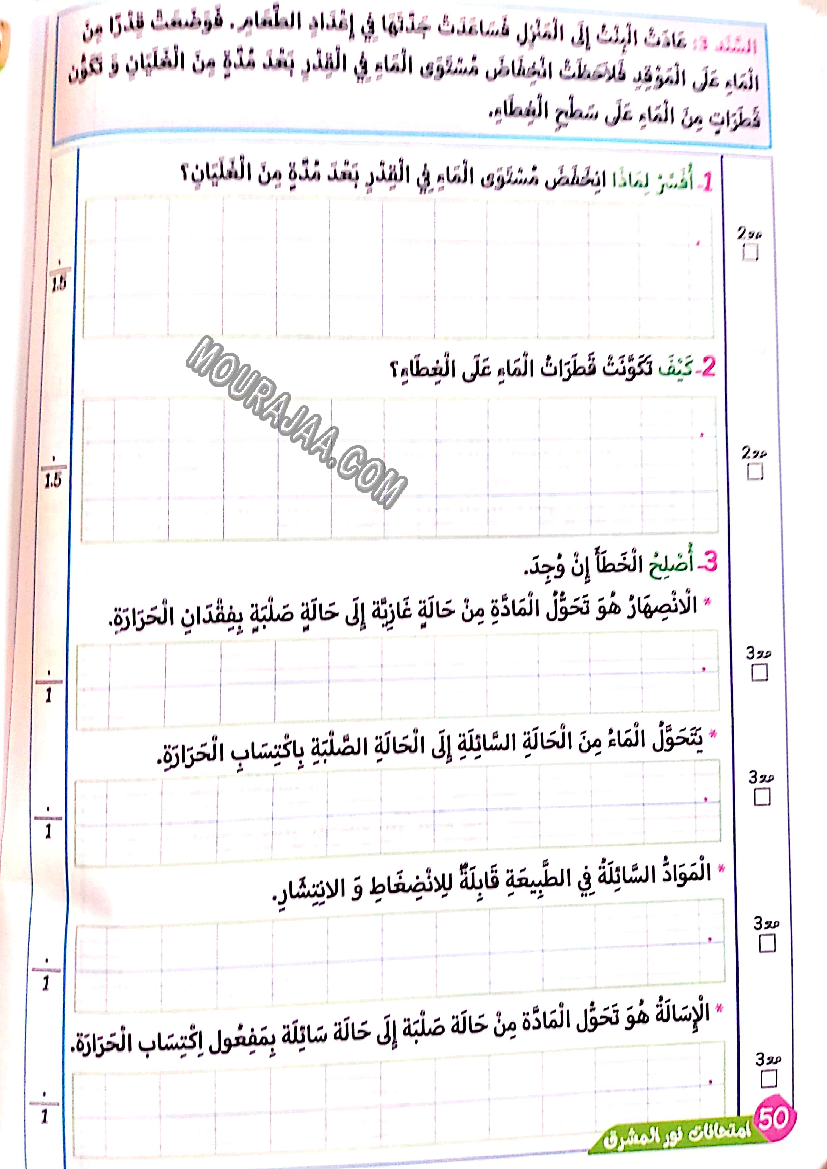 السَّنَد 3: عَادَتْ الْبِنْتُ إِلَى الْمَنْزِلِ فَسَاعَدَتْ جَدَّتَهَا فِي إِعْدَادِ الطَّعَامِ. فَوَضَعَتْ قِدْرًا مِنَ
الْمَاءِ عَلَى الْمَوْقِدِ فَلَاحَظَتْ انْخِفَاضَ مُسْتَوَى الْمَاءِ فِي الْقِدْرِ بَعْدَ مُدَّةٍ مِنَ الْغَلَيَانِ وَ تَكَوُّن
قَطَرَاتٍ مِنَ الْمَاءِ عَلَى سَطْحِ الْغِطَاءِ.
1- أُفَسِّرُ لِمَاذَا انِخَفَضَ مُسْتَوَى الْمَاءِ فِي الْقِدْرِ بَعْدَ مُدَّةٍ مِنَ الْغَلَيَانِ؟
مع2
1.5
2- كَيْفَ تَكَوَّنَتْ قَطَرَاتُ الْمَاءِ عَلَى الْغِطَاءِ؟
MOURAJAA.COM
مع2
1.5
3- أُصْلِحُ الْخَطَأَ إِنْ وُجِدَ.
* الْانْصِهَارُ هُوَ تَحَوُّلُ الْمَادَّةِ مِنْ حَالَةٍ غَازِيَّة إِلَى حَالَةٍ صَلْبَةٍ بِفِقْدَانِ الْحَرَارَةِ.
مع3
1
* يَتَحَوَّلُ الْمَاءُ مِنَ الْحَالَةِ السَّائِلَةِ إِلَى الْحَالَةِ الصَّلْبَةِ بِاكْتِسَابِ الْحَرَارَةِ.
مع3
1
* الْمَوَادُّ السَّائِلَةُ فِي الطَّبِيعَةِ قَابِلَةٌ للِانْضِغَاطِ وَ الانِتِشَارِ.
مع3
1
* الْإِسَالَةُ هُوَ تَحَوُّل الْمَادَّة مِنْ حَالَة صَلْبَة إِلَى حَالَة سَائِلَة بِمَفِعُول اِكْتِسَاب الْحَرَارَة.
مع3
1
50 امتحانات نور المشرق